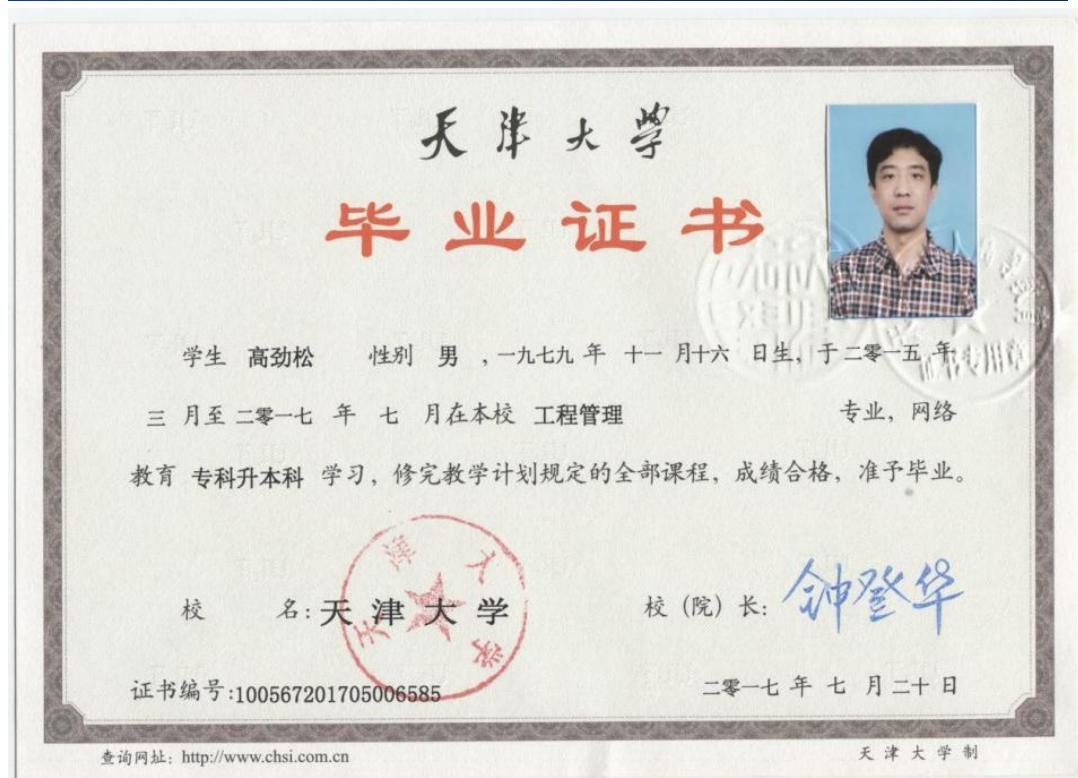 天津大学
毕业证书
学生 高劲松 性别 男 ，一九七九 年 十一 月十六 日生，于二零一五 年
三 月至 二零一七 年 七 月在本校 工程管理 专业，网络
教育 专科升本科 学习，修完教学计划规定的全部课程，成绩合格，准予毕业。
天津大学
校 名：天津大学 校（院）长：钟登华
证书编号:100567201705006585 二零一七 年 七 月二十 日
查询网址：http://www.chsi.com.cn 天津大学制